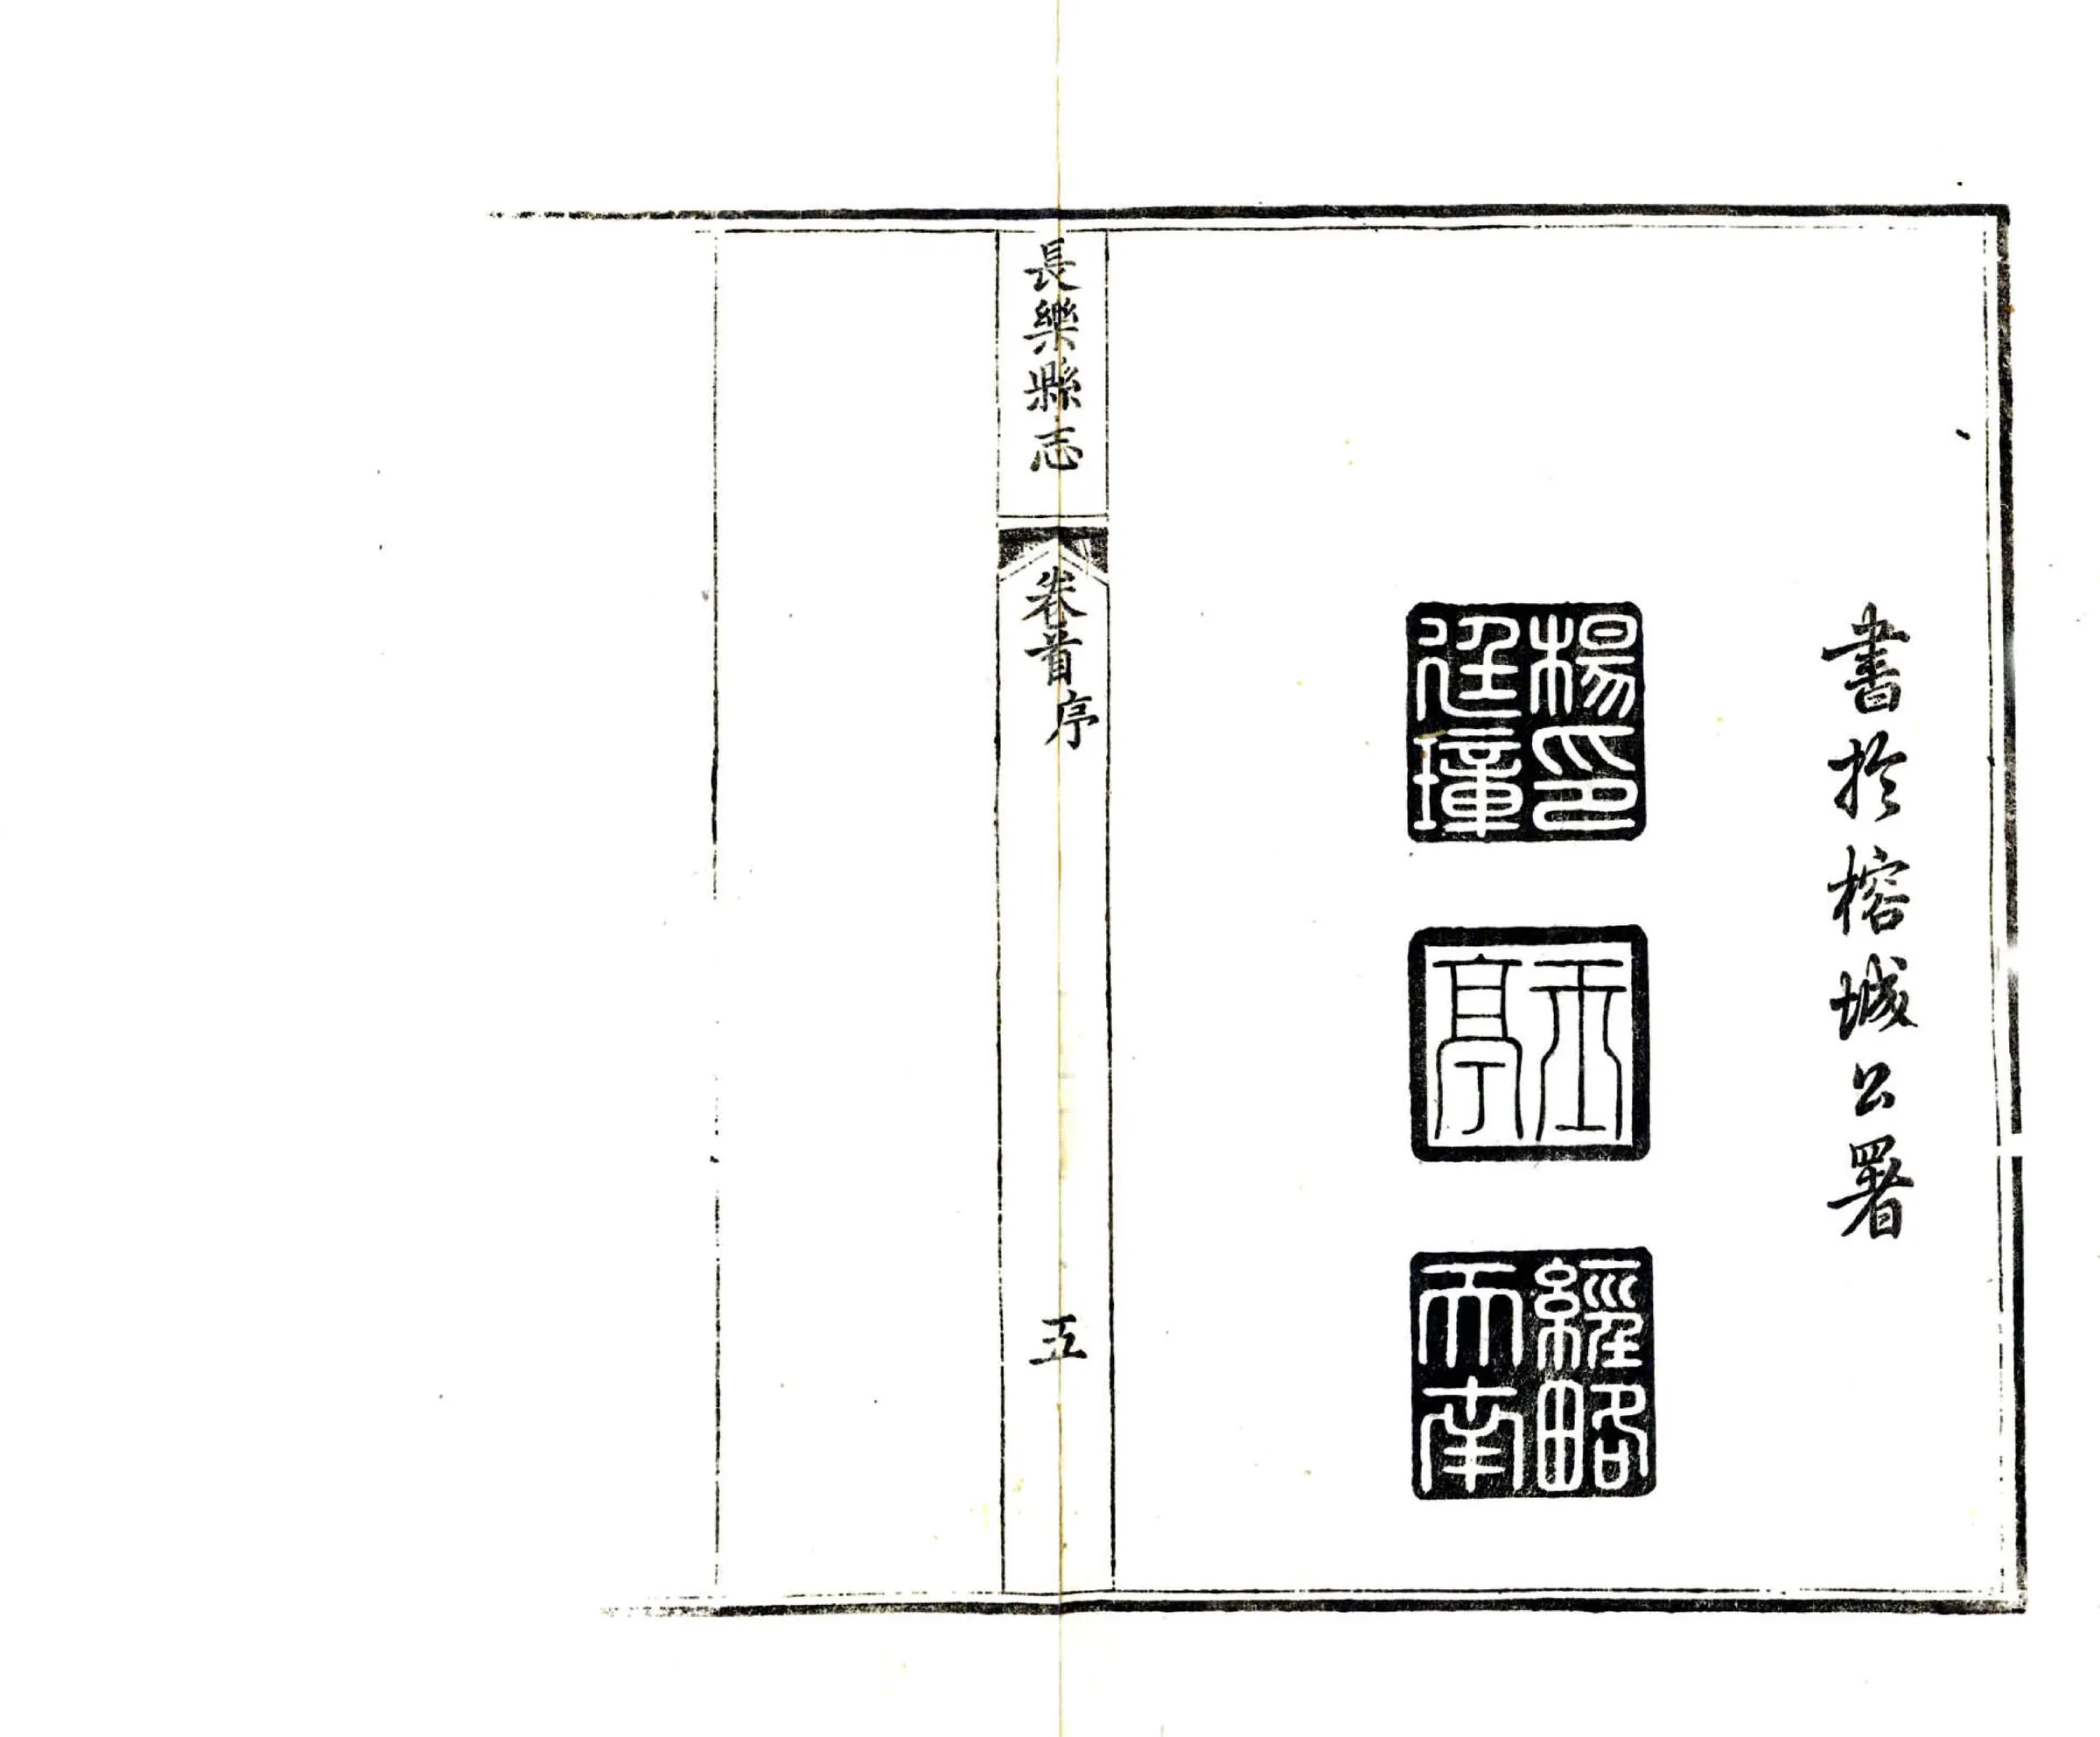 書於榕城公署
楊印廷璋
亭
經略天南
長樂縣志
卷首
序
五